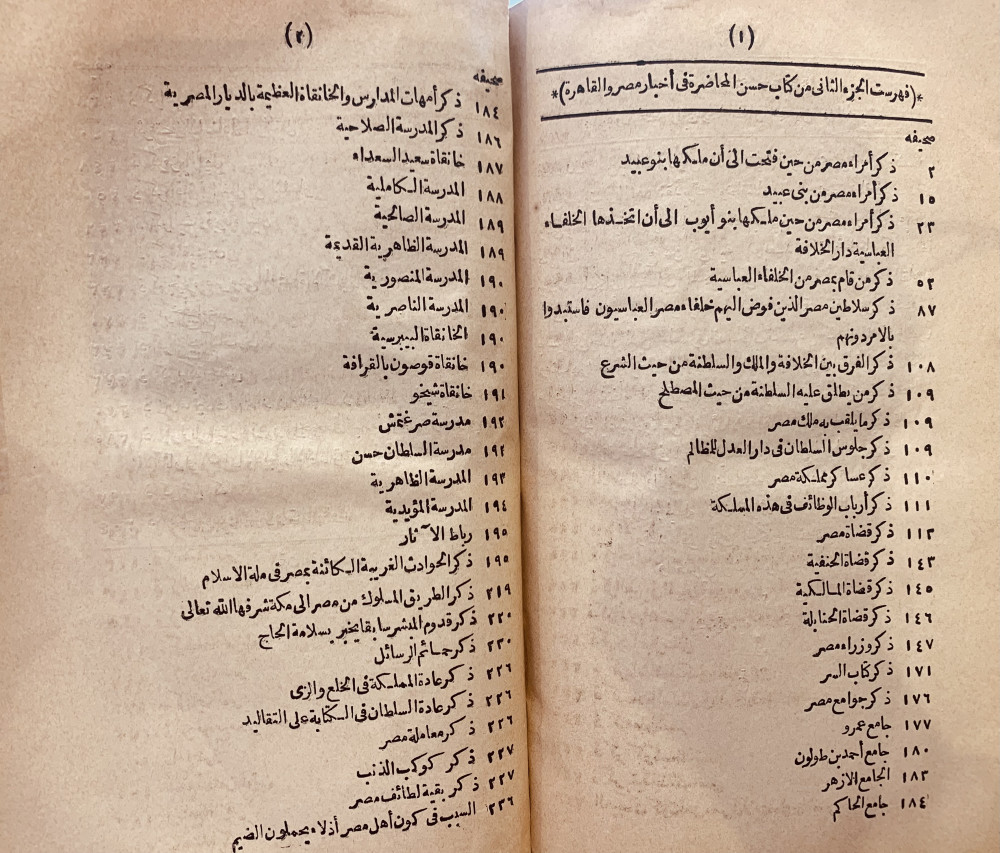 (١)
*(فهرست الجزء الثانى من كتاب حسن المحاضرة فى أخبار مصر والقاهرة)*
صحيفه
٢ ذكر أمراء مصر من حين فتحت الى أن ملكها بنو عبيد
١٥ ذكر أمراء مصر من بنى عبيد
٢٣ ذكر أمراء مصر من حين ملكها بنو أيوب الى أن اتخذها الخلفاء
العباسية دار الخلافة
٥٣ ذكر من قام بمصر من الخلفاء العباسية
٨٧ ذكر سلاطين مصر الذين فوض اليهم خلفاء مصر العباسيون فاستبدوا
بالامر دونهم
١٠٨ ذكر الفرق بين الخلافة والملك والسلطنة من حيث الشرع
١٠٩ ذكر من يطلق عليه السلطنة من حيث المصطلح
١٠٩ ذكر ما يلقب به ملك مصر
١٠٩ ذكر جلوس السلطان فى دار العدل للمظالم
١١٠ ذكر عساكر مملكة مصر
١١١ ذكر أرباب الوظائف فى هذه المملكة
١١٢ ذكر قضاة مصر
١٤٣ ذكر قضاة الحنفية
١٤٥ ذكر قضاة المالكية
١٤٦ ذكر قضاة الحنابلة
١٤٧ ذكر وزراء مصر
١٧١ ذكر كتاب السر
١٧٦ ذكر جوامع مصر
١٧٧ جامع عمرو
١٨٠ جامع أحمد بن طولون
١٨٣ الجامع الازهر
١٨٤ جامع الحاكم
(٢)
صحيفه
١٨٤ ذكر أمهات المدارس والخانقاة العظيمة بالديار المصرية
١٨٦ ذكر المدرسة الصلاحية
١٨٧ خانقاة سعيد السعداء
١٨٨ المدرسة الكاملية
١٨٩ المدرسة الصالحية
١٨٩ المدرسة الظاهرية القديمة
١٩٠ المدرسة المنصورية
١٩٠ المدرسة الناصرية
١٩٠ الخانقاة البيبرسية
١٩٠ خانقاة قوصون بالقرافة
١٩١ خانقاة شيخو
١٩٢ مدرسة صرغتمش
١٩٢ مدرسة السلطان حسن
١٩٣ المدرسة الظاهرية
١٩٤ المدرسة المؤيدية
١٩٥ رباط الآثار
١٩٥ ذكر الحوادث الغريبة الكائنة بمصر فى ملة الاسلام
٢١٩ ذكر الطريق المسلوك من مصر الى مكة شرفها الله تعالى
٢٢٠ ذكر قدوم المبشر سابقا يخبر بسلامة الحاج
٢٣٠ ذكر حمائم الرسائل
٢٢٦ ذكر عادة المملكة فى الخلع والزى
٢٢٦ ذكر عادة السلطان فى الكتابة على التقاليد
٢٢٦ ذكر معاملة مصر
٢٢٧ ذكر كوكب الذنب
٢٢٧ ذكر بقية لطائف مصر
٢٣٦ السبب فى كون أهل مصر أذلاء يحملون الضيم